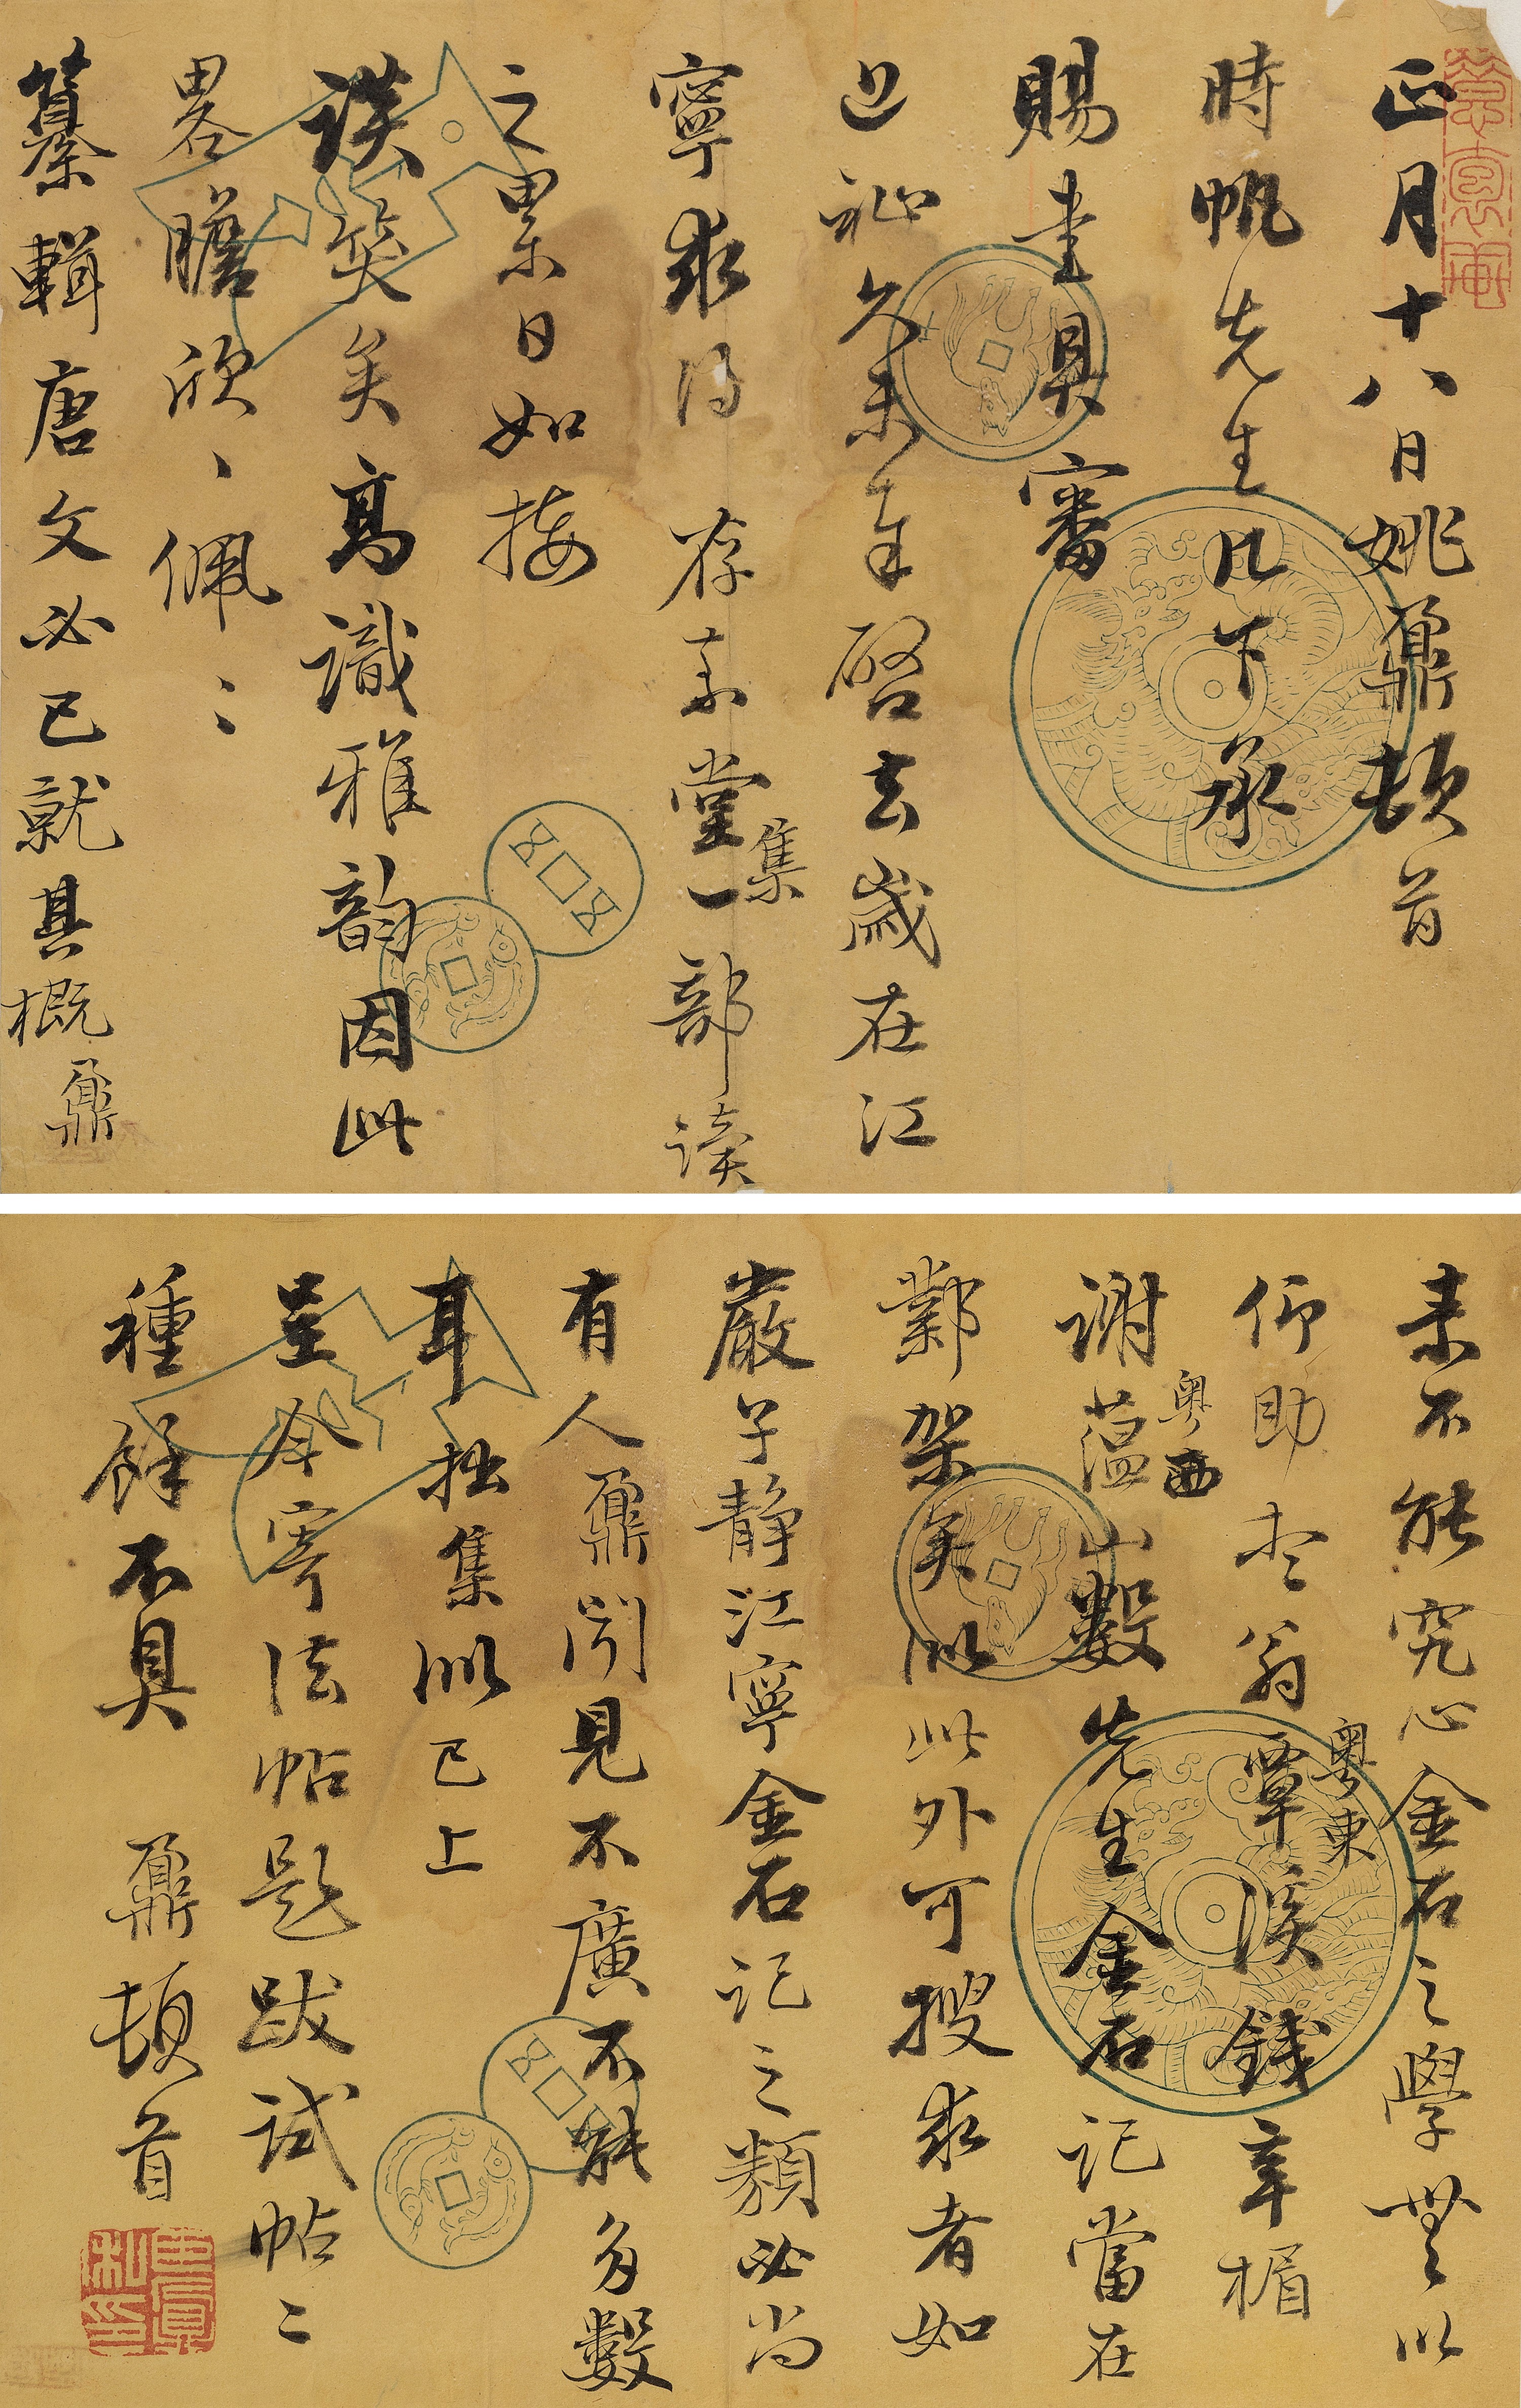 正月十八日姚鼐頓首
時帆先生几下承
賜書具審
近祉久未奉啓去歲在江
寧求得存素堂集一部讀
之累日如接
談笑矣高識雅韵因此
畧瞻欣、佩:
纂輯唐文必已就其概鼐
素不能究心金石之學無以
仰助大翁粵東覃溪錢辛楣
謝蘊山粵西數先生金石記當在
鄴架矣似此外可搜求者如
嚴子静江寧金石記之類必尚
有人鼐聞見不廣不能多數
耳拙集似已上
呈今寄法帖題跋試帖二
種餘不具 鼐頓首